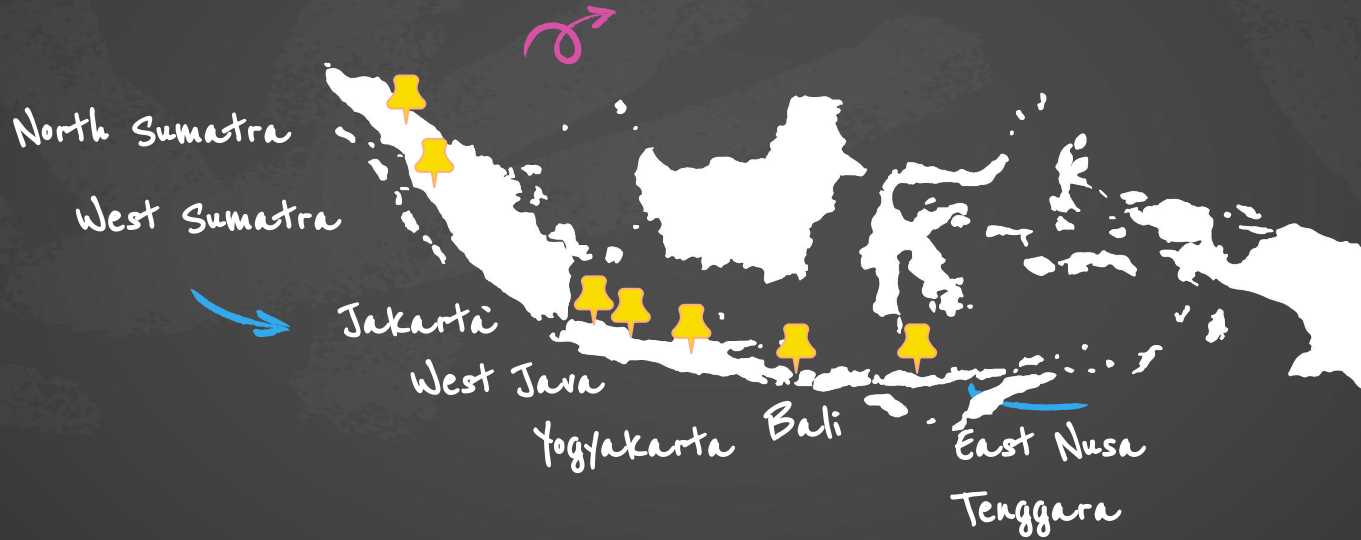 North Sumatra
West Sumatra
Jakarta
West Java
Yogyakarta
Bali
East Nusa
Tenggara